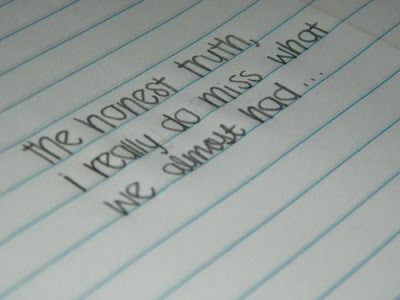 the honest truth,
i really do miss what
we almost had...